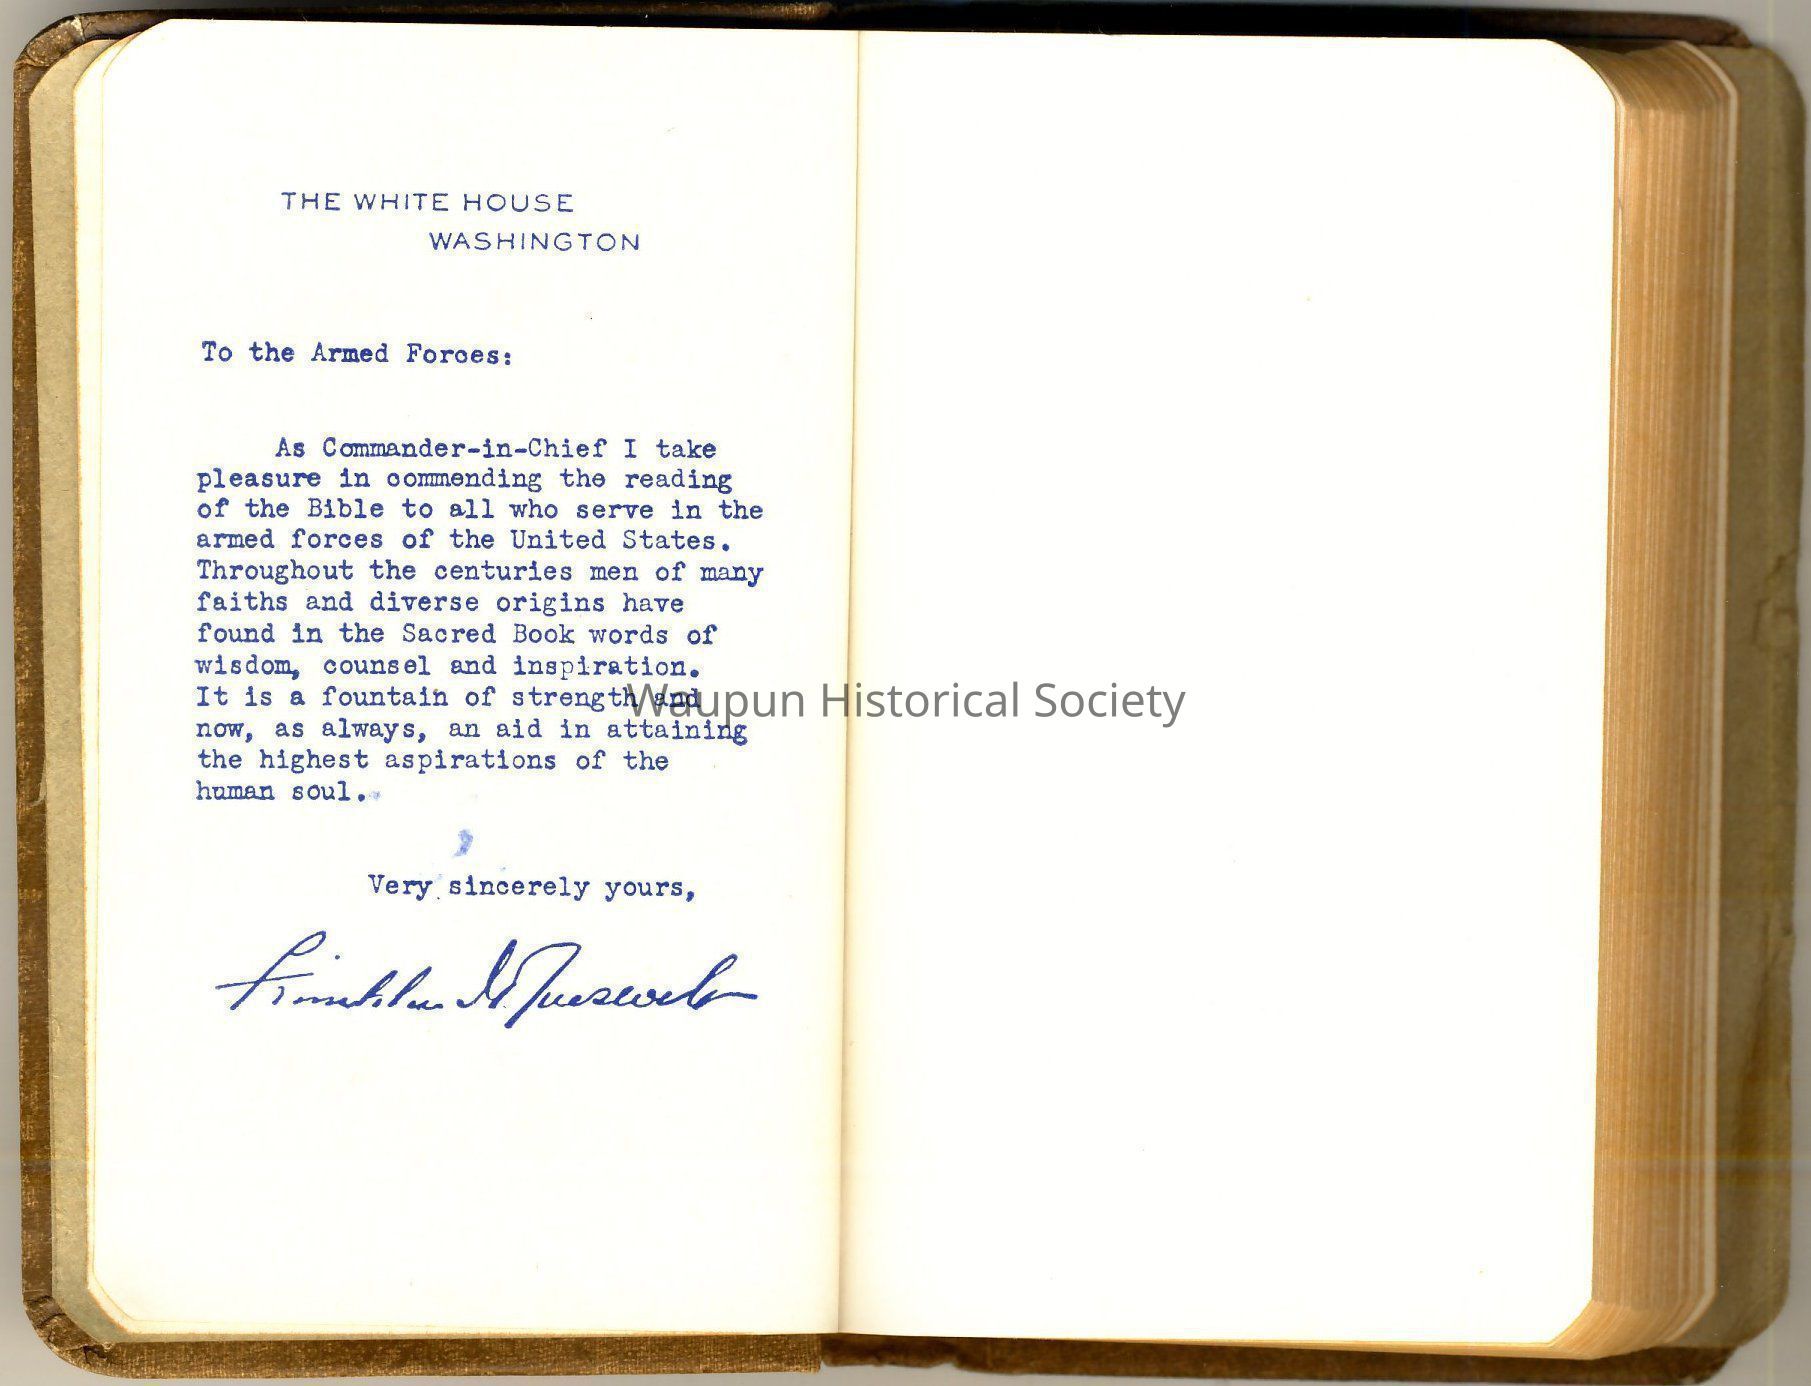 THE WHITE HOUSE
WASHINGTON
To the Armed Forces:
As Commander-in-Chief I take
pleasure in commending the reading
of the Bible to all who serve in the
armed forces of the United States.
Throughout the centuries men of many
faiths and diverse origins have
found in the Sacred Book words of
wisdom, counsel and inspiration.
It is a fountain of strength and
now, as always, an aid in attaining
the highest aspirations of the
human soul.
Very sincerely yours,
Franklin D. Roosevelt
Waupun Historical Society